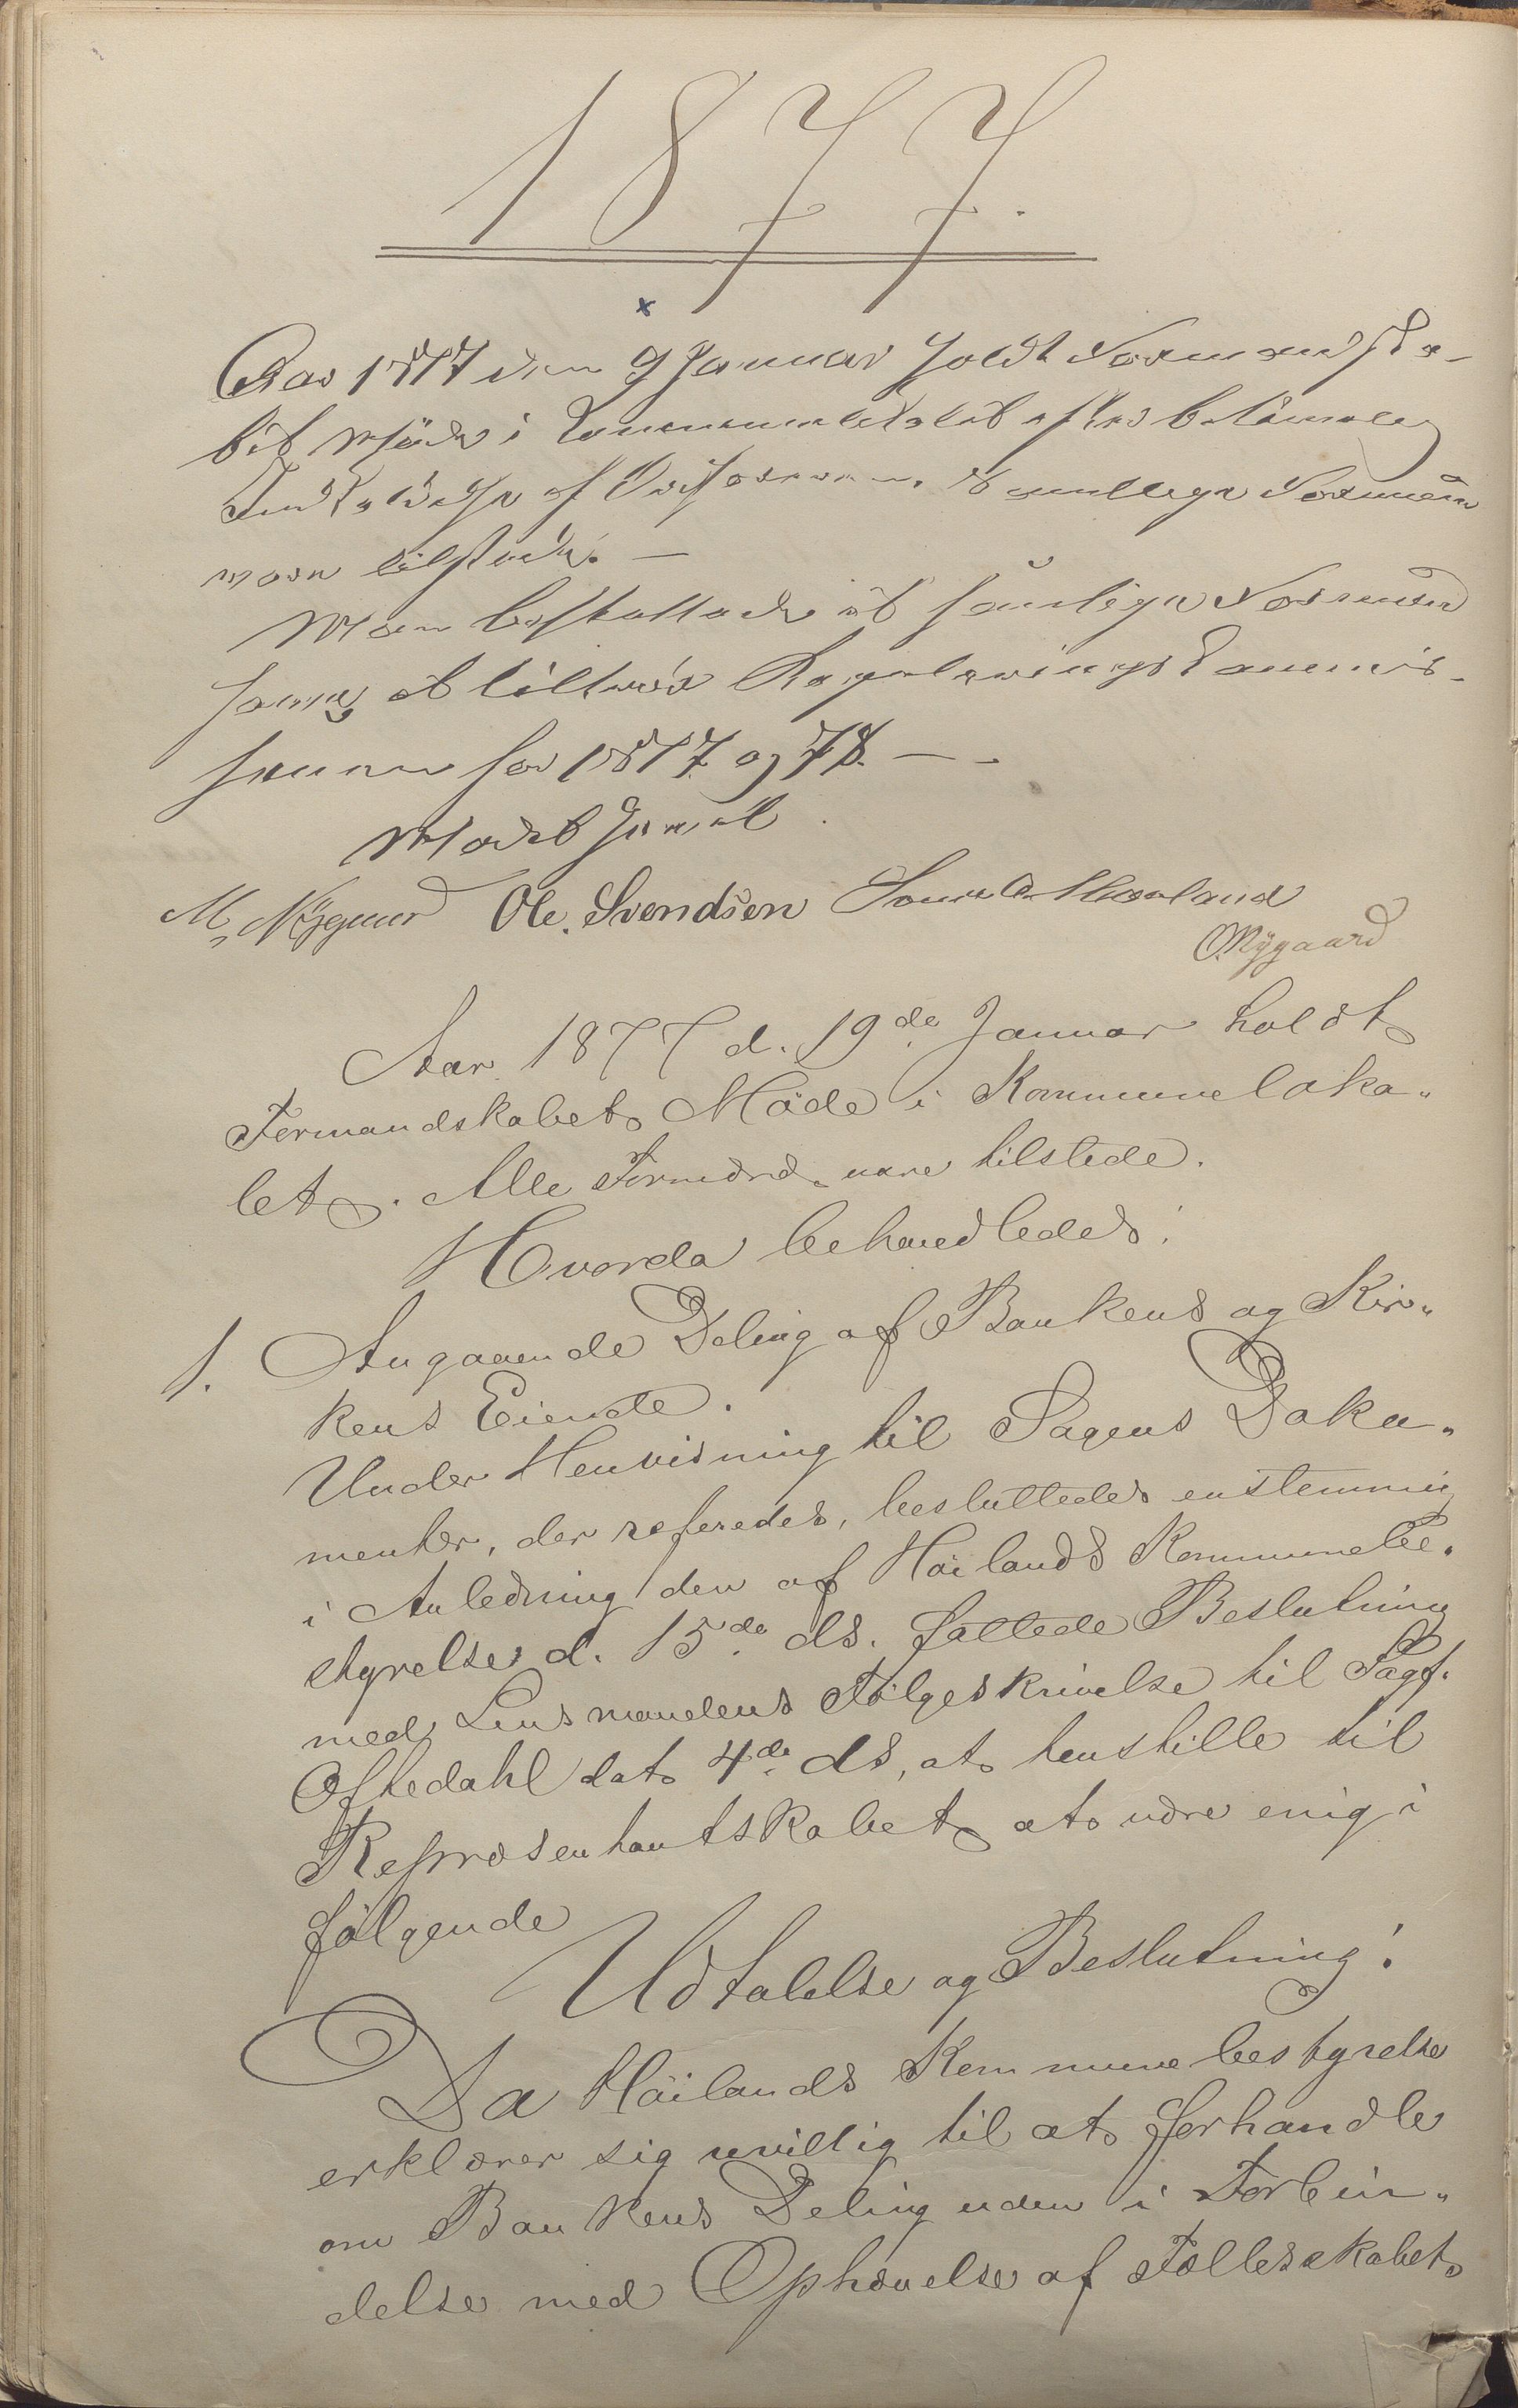 1877.
Aar 1877 den 9 Januar holdt Formandska-
bet Møde i Kommunelokalet efter betimelig
Indkaldelse af Ordføreren. Samtlige Formænd
vare tilstede. —
Man besluttede at samtlige Formænd
som at tiltræde Reguleringskommis-
sionen for 1877 og 78. —
Mødet hævet.
M. Nÿgaard Ole. Svendsen
O. Nÿgaard
Aar 1877 d. 19de Januar holdt
Formandskabet Möde i Kommuneloka-
let. Alle Formænd vare tilstede.
Hvorda behandledes:
1. Angaaende Deling af Bankens og Kir-
kens Eiende.
Under Henvisning til Sagens Doku-
menter, der referedes, besluttedes enstemmig
i Anledning den af Höilands Kommunebe-
styrelse d. 15de ds. fattede Beslutning
med Lensmandens Fölgeskrivelse til Sagf.
Oftedahl dat 4de ds, at henstille til
Repræsentantskabet at være enig i
fölgende
Udtalelse og Beslutning:
Da Höilands Kommunebestyrelse
erklærer sig uvillig til at forhandle
om Bankens Deling uden i Forbin-
delse med Ophævelse af Fællesskabet